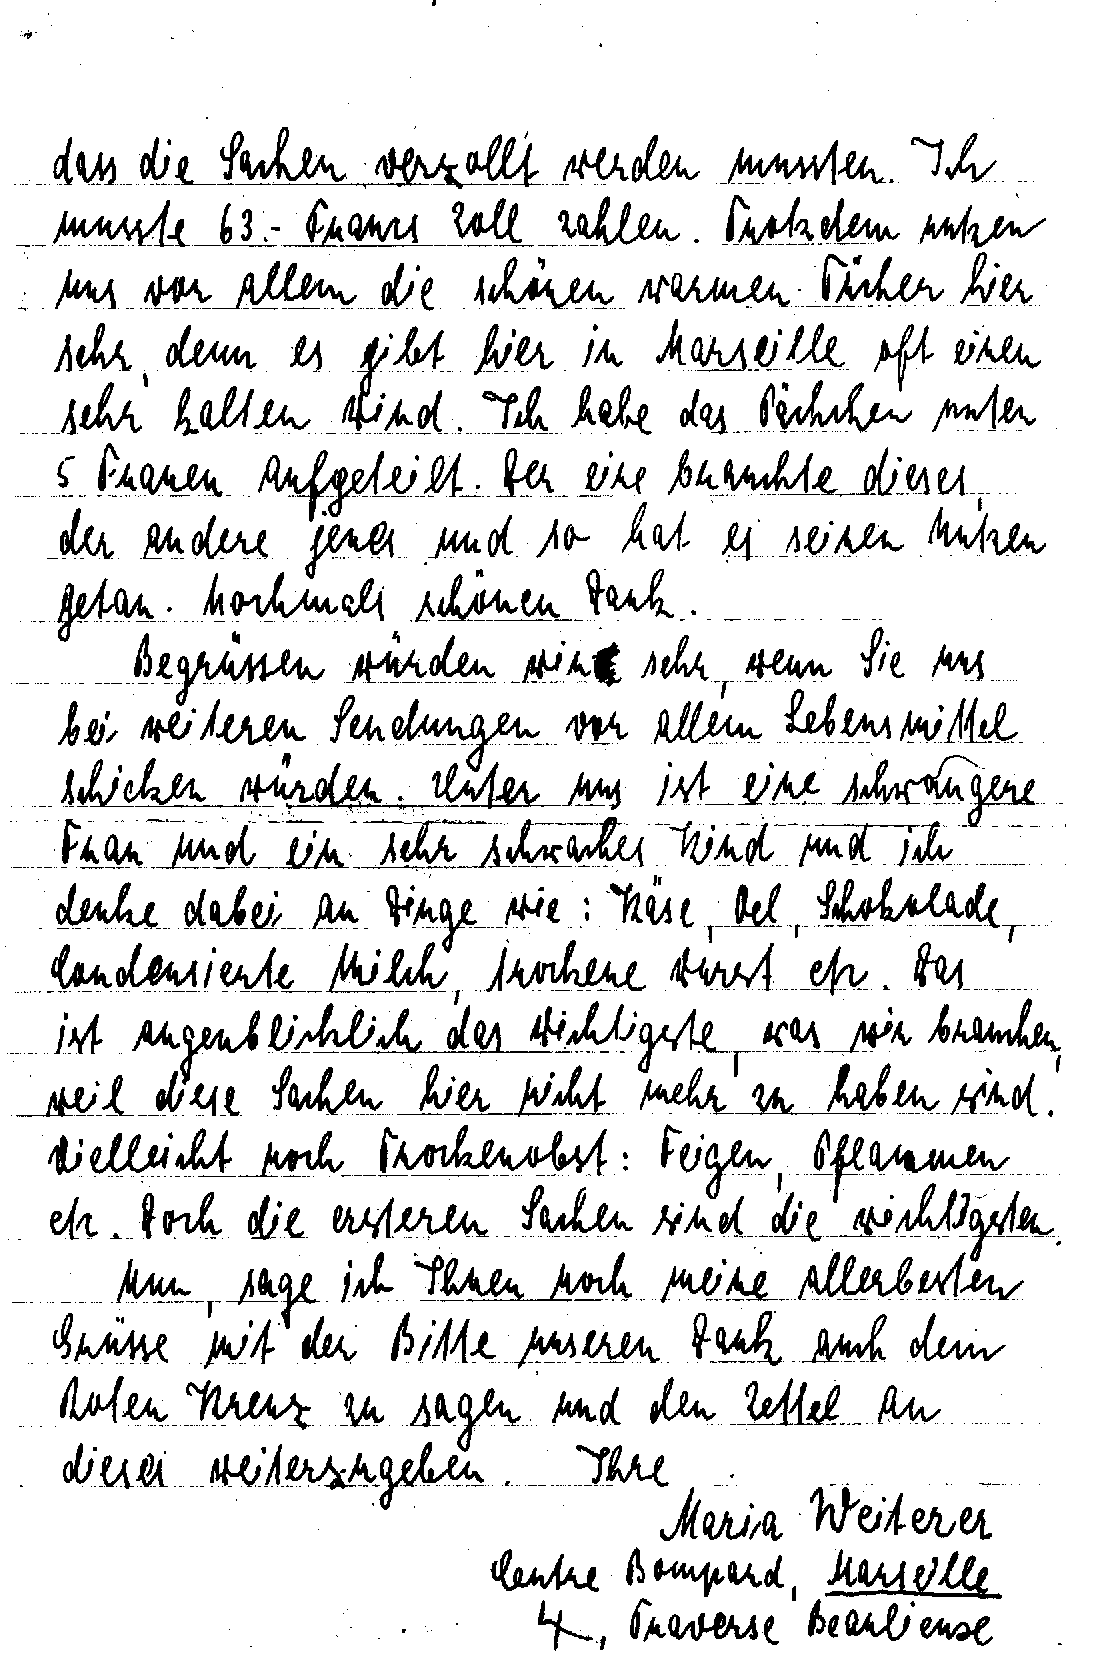 dass die Sachen verzollt werden mussten. Ich
musste 63.- Francs Zoll zahlen. Trotzdem nutzen
uns vor allem die schönen warmen Tücher hier
sehr, denn es gibt hier in Marseille oft einen
sehr kalten Wind. Ich habe das Päckchen unter
5 Frauen aufgeteilt. Der eine brauchte dieses,
der andere jenes und so hat es seinen Nutzen
getan. Nochmals schönen Dank.
Begrüssen würden wir sehr, wenn Sie uns
bei weiteren Sendungen vor allem Lebensmittel
schicken würden. Unter uns ist eine schwangere
Frau und ein sehr schwaches Kind und ich
denke dabei an Dinge wie: Käse, Oel, Schokolade,
Condensierte Milch, trockene Wurst etc. Das
ist augenblicklich das Wichtigste, was wir brauchen,
weil diese Sachen hier nicht mehr zu haben sind.
Vielleicht noch Trockenobst: Feigen, Pflaumen
etc. Doch die ersteren Sachen sind die wichtigsten.
Nun, sage ich Ihnen noch meine allerbesten
Grüsse mit der Bitte unseren Dank auch dem
Roten Kreuz zu sagen und den Zettel an
dieses weiterzugeben. Ihre
Maria Weiterer
Centre Bompard, Marseille
4, Traverse Beaulieuse